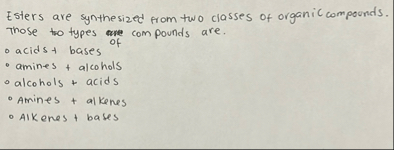 Esters are synthesized from two classes of organic compounds.
Those two types of compounds are.
• acids + bases
• amines + alcohols
• alcohols + acids
• Amines + alkenes
• Alkenes + bases